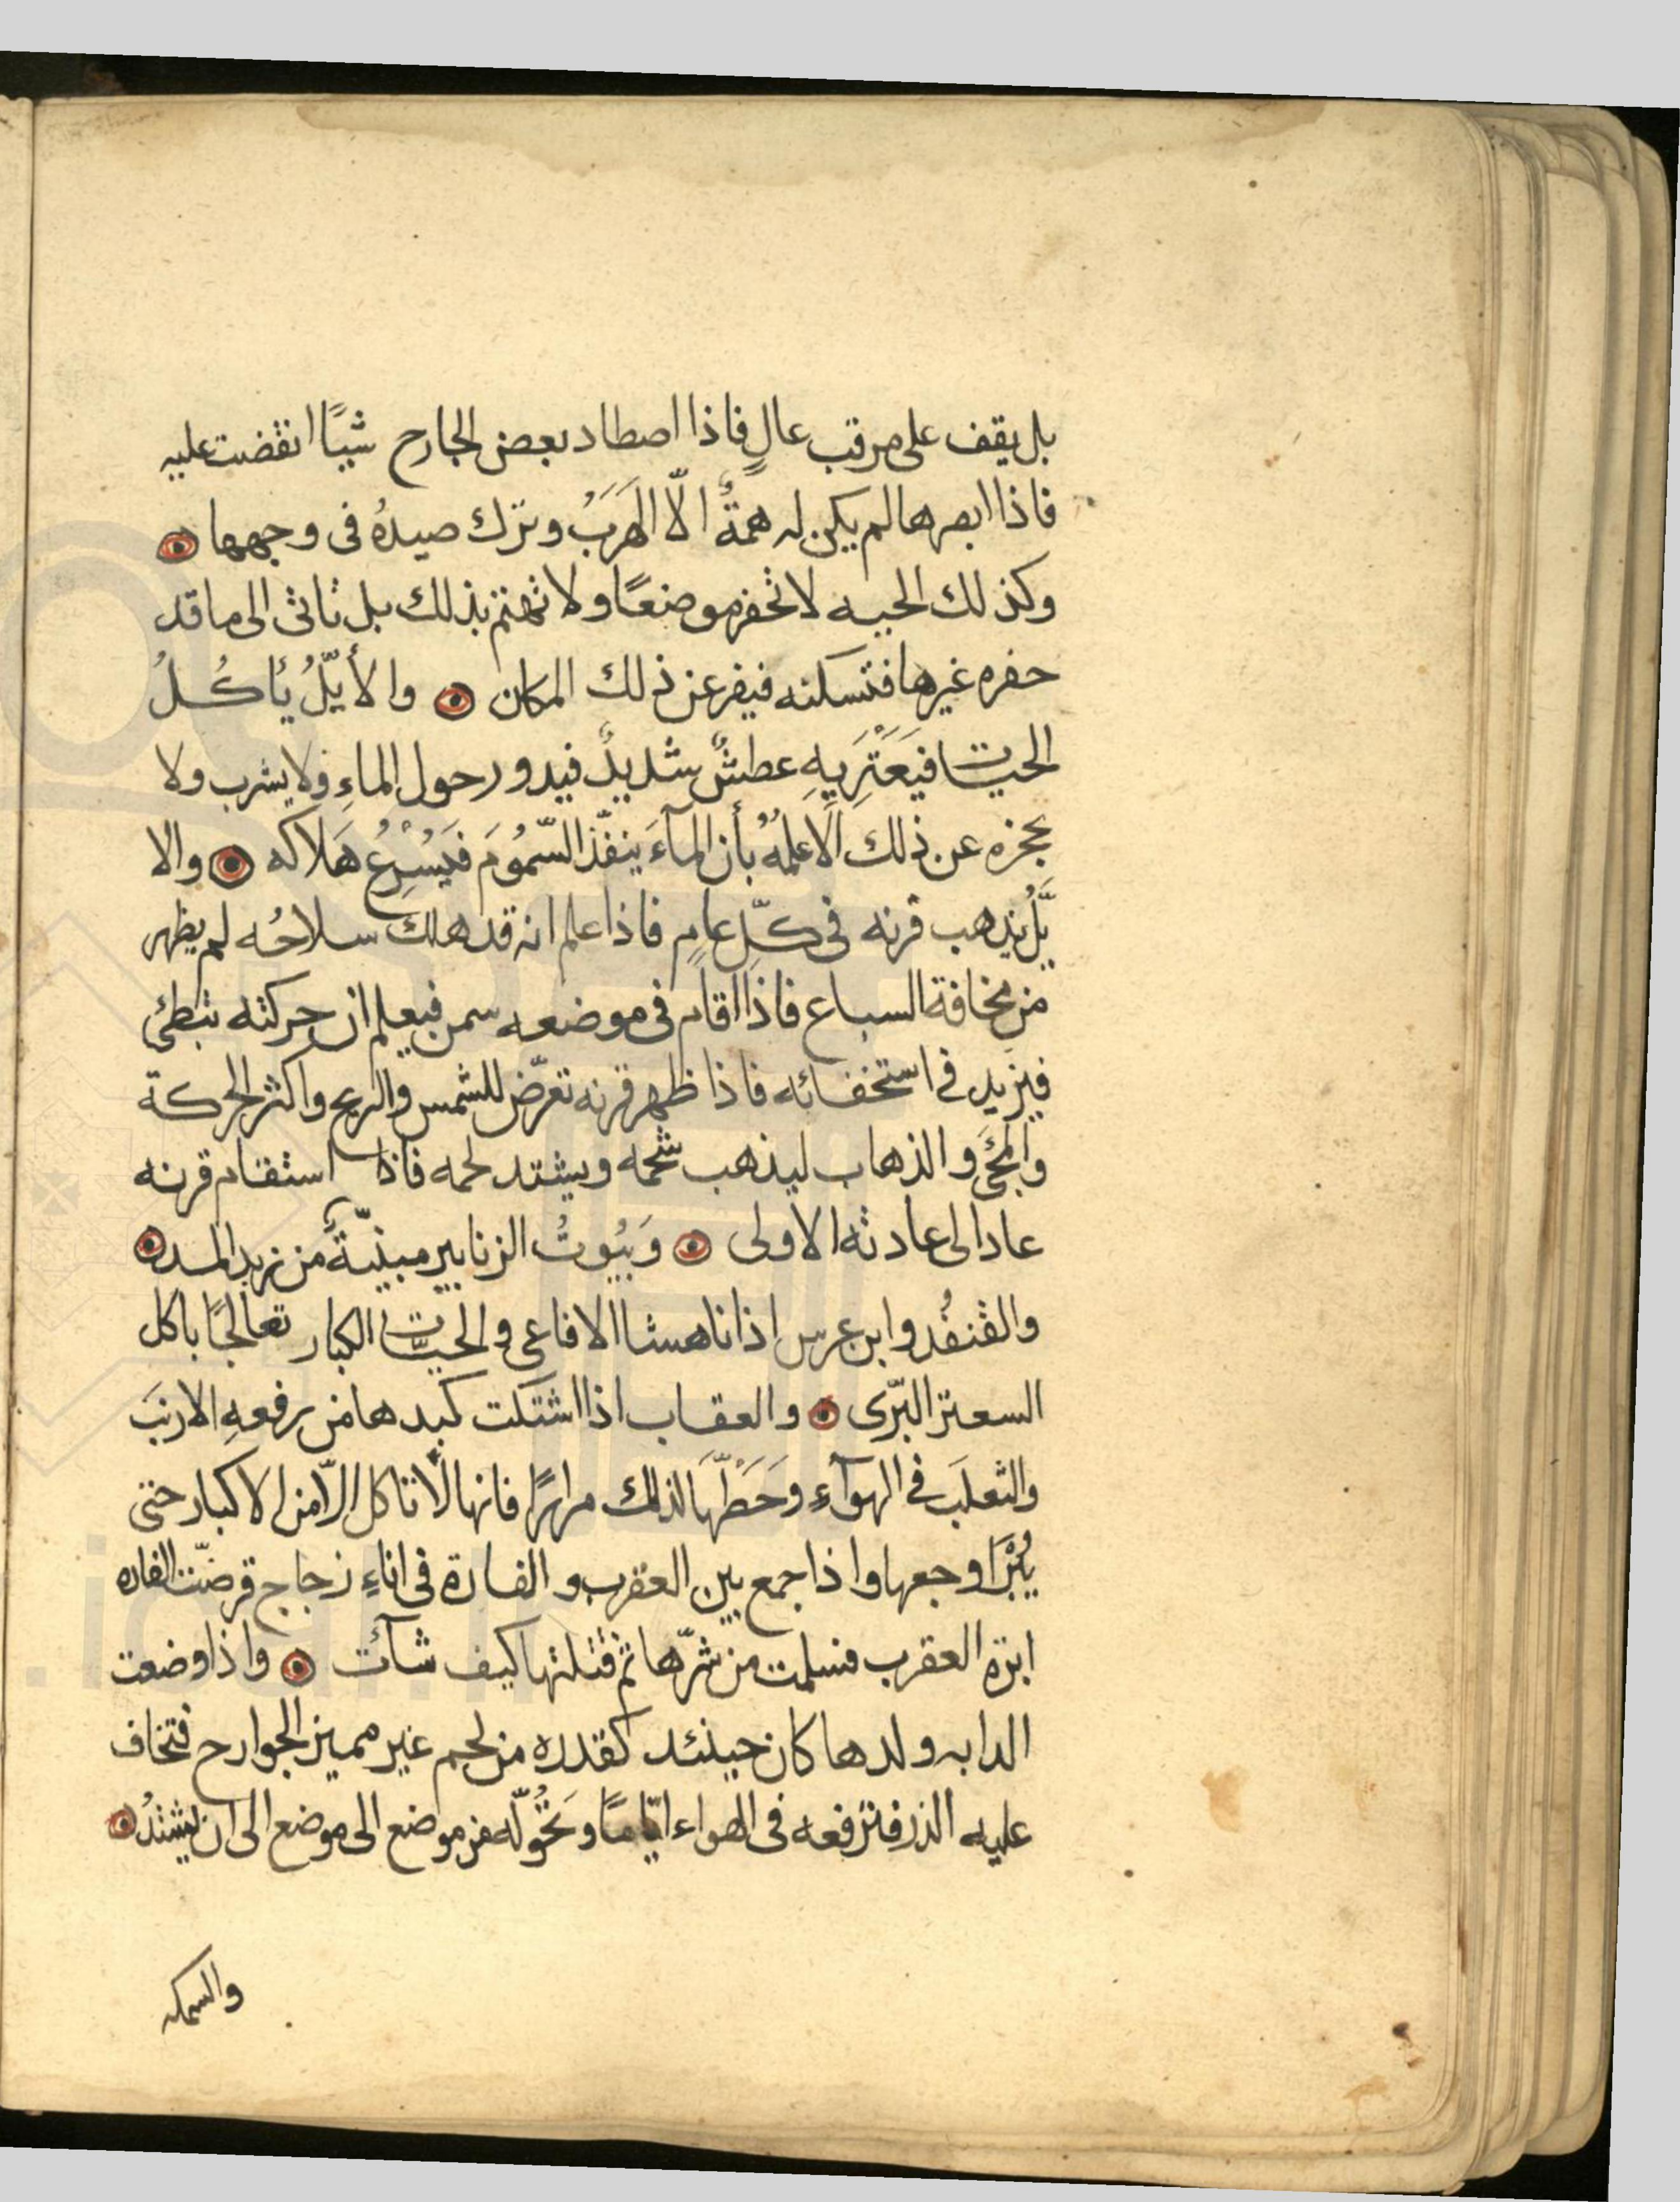 بل يقف على مرقب عالٍ فاذا اصطاد بعض الجارح شيئًا انقضت عليه
فاذا ابصرها لم يكن له همةٌ الّا الهَرَبُ وترك صيدهُ فى وجهها
وكذلك الحيه لا تحفر موضعًا ولا تهتم بذلك بل تاتى الى ما قد
حفره غيرها فتسكنه فيفر عن ذلك المكان والأيّلُ يأكُلُ
الحيات فيَعْتَرِيهِ عطشٌ شديدٌ فيدور حول الماءِ ولا يشرب ولا
يحجزه عن ذلك الّا علمُهُ بأن المآءَ ينفّذ السّمُومَ فيُسْرِعُ هَلاكه والا
يَّلُ يذهب قرنه فى كلّ عامٍ فاذا علم انه قد هلك سلاحُه لم يظهر
من مخافة السباع فاذا اقام فى موضعه سمن فيعلم ان حركته تبطئ
فيزيد فى استخفائه فاذا ظهر قرنه تعرّض للشمس والريح واكثر الحركة
والمجَى والذهاب ليذهب شحمه ويشتد لحمه فاذا استقام قرنه
عاد الى عادته الاولى وَبُيُوتُ الزنابير مبنيّةٌ من زبد المد
والقنفُد وابن عرس اذا ناهشا الافاعى والحيّات الكبار تعالجًا باكل
السعتر البّرى والعقاب اذا اشتكت كبدها من رفعهِ الارنبَ
والثعلَب فى الهوآءِ وحَطّهَا لذلك مرارًا فانها لا تاكل الّا من الاكباد حتى
يُبْرَا وجعها واذا جمع بين العقرب والفارة فى اناءِ زجاج قرضّت الفاره
ابرة العقرب فسلمت من شرّها ثم قتلتها كيف شآئت واذا وضعت
الدابه ولدها كان حينئد كقدره من لحم غير مميز الجوارح فتخاف
عليه الذر فترفعه فى الهواء ايّامًا وتحُوّله من موضع الى موضع الى ان يشتدُ
والسمكه